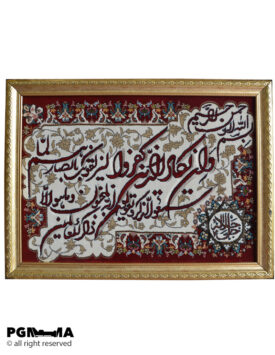 بسم الله الرحمن الرحیم
وان یکاد الذین کفروا لیزلقونک بابصارهم لما
سمعوا الذکر و یقولون انه لمجنون و ما هو الا
ذکر للعالمین
PGMA
© all rights reserved